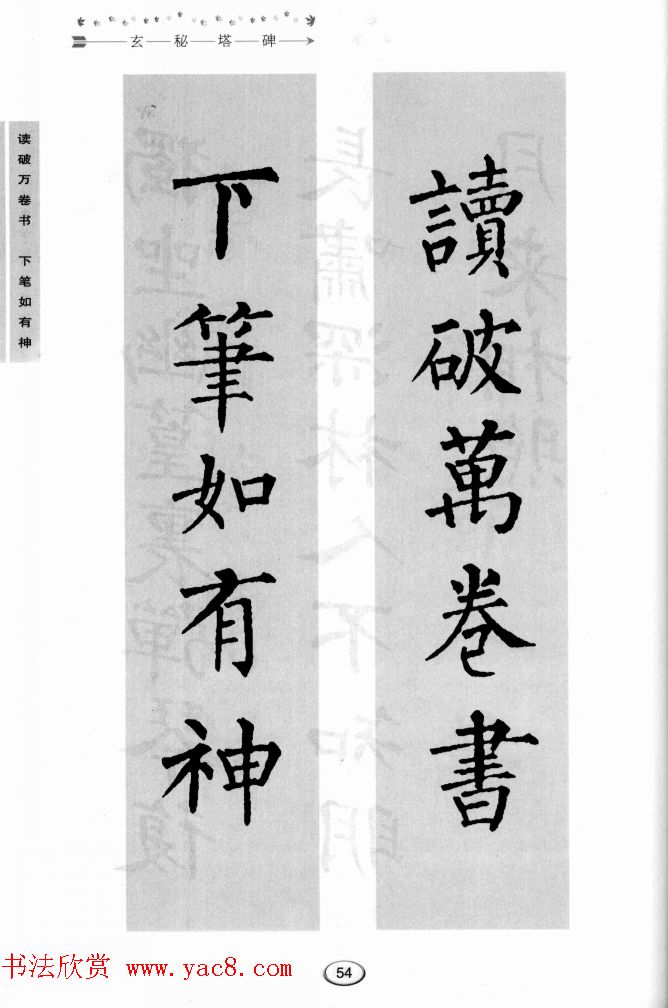 玄秘塔碑
读破万卷书 下笔如有神
讀破萬卷書
下筆如有神
54
书法欣赏 www.yac8.com